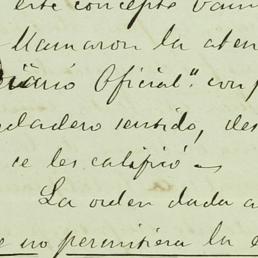 este concepto vam
llamaron la aten
iario Oficial". con
dadero sentido, des
se les calificó
La orden dada a
e no permitiera la e